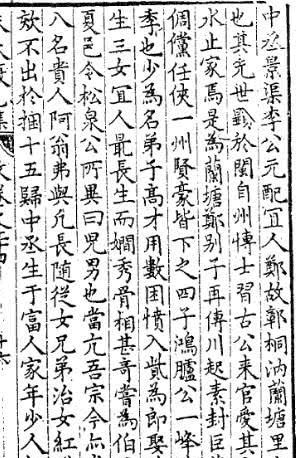 中丞景渠李公元配宜人鄭故鄣桐汭蘭塘里
也其先世勳於閩自州慱士習古公来官愛其
水止家焉是為蘭塘鄭别子再傳川起素封
倜儻任俠一州賢豪皆下之四子鴻臚公一峰
季也少為名弟子髙才用數困憤入貲為郎娶
生三女宜人最長生而嫺秀骨相甚竒嘗為伯
夏邑令松泉公所異曰児男也當亢吾宗今
八名貴人阿翁弗與凡長随從女兄弟治女紅
欬不出於梱十五歸中丞生于富人家年少人